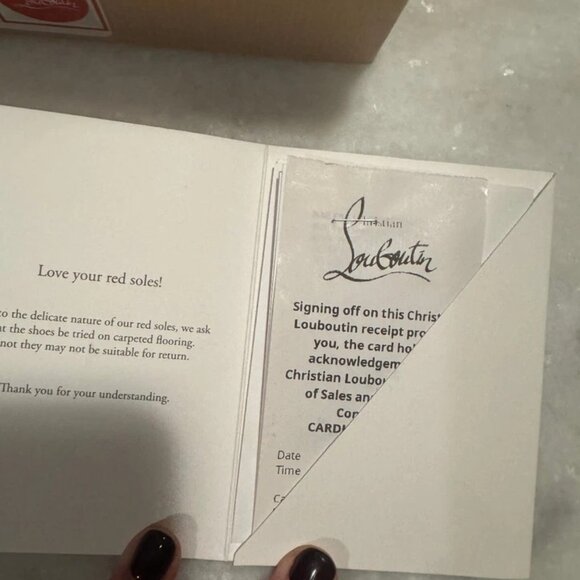 Louboutin
Love your red soles!
to the delicate nature of our red soles, we ask
the shoes be tried on carpeted flooring.
not they may not be suitable for return.
Thank you for your understanding.
Christian
Louboutin
Signing off on this Christ
Louboutin receipt pro
you, the card hol
acknowledgem
Christian Loubou
of Sales an
Con
CARD
Date
Time
Ca